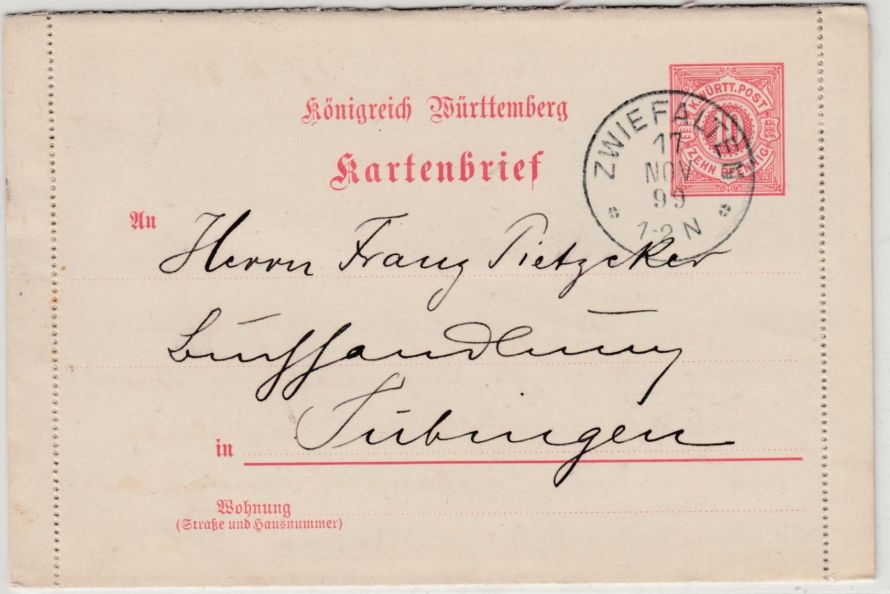 Königreich Württemberg
Kartenbrief
K. WÜRTT. POST
10
ZEHN PFENNIG
ZWIEFALTEN
17
NOV
99
1-2 N
An
Herrn Franz Pietzcker
Buchhandlung
in Tübingen
Wohnung
(Straße und Hausnummer)